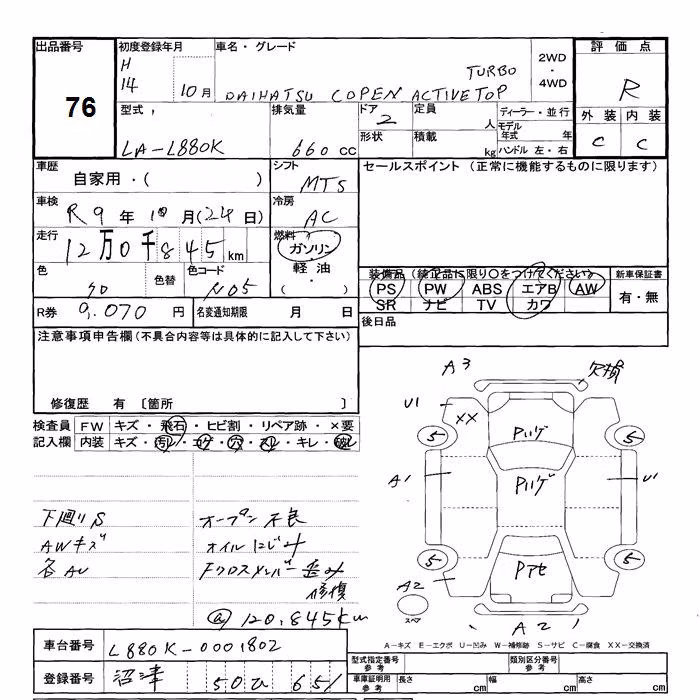 出品番号
76
初度登録年月
H
14 10月
車名・グレード
TURBO
DAIHATSU COPEN ACTIVETOP
2WD
・
4WD
評価点
R
外装 内装
C C
型式
LA-L880K
排気量
660 cc
ドア
2
形状
定員
人
積載
kg
ディーラー・並行
モデル年式 年
ハンドル 左・右
車歴
自家用・( )
シフト
MT5
セールスポイント (正常に機能するものに限ります)
車検
R9年10月(24日)
冷房
AC
走行
12万0千845km
燃料
ガソリン
・
軽油
・
( )
色
色替
色コード
N05
装備品 (純正品に限り○をつけてください)
PS PW ABS エアB AW
SR ナビ TV カワ
新車保証書
有・無
R券 9,070円
名変通知期限 月 日
後日品
注意事項申告欄 (不具合内容等は具体的に記入して下さい)
修復歴 有 〔箇所 〕
検査員記入欄
FW キズ・飛石・ヒビ割・リペア跡・×要
内装 キズ・汚レ・コゲ・穴・スレ・キレ・破レ
下廻りS
AWキズ
各AU
オープン不良
オイルにじみ
Fクロスメンバー歪み
修復
@120,845km
A3
欠損
U1
XX
5
5
Pハゲ
A1
Pハゲ
U1
5
5
Pアセ
A2
スペア
A2
A-キズ E-エクボ U-凹み W-補修跡 S-サビ C-腐食 XX-交換済
車台番号 L880K-0001802
登録番号 沼津 50ひ 651
型式指定番号 参考
類別区分番号 参考
車庫証明用 参考
長さ cm
幅 cm
高さ cm